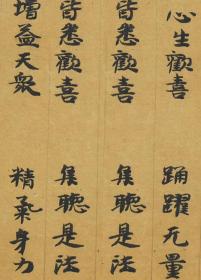 心生歡喜 踊躍无量
皆悉歡喜 集聽是法
皆悉歡喜 集聽是法
增益天衆 精氣身力